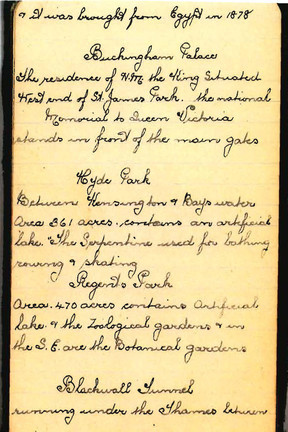 & it was brought from Egypt in 1878
Buckingham Palace
The residence of H.M. the King Situated
West end of St. James Park. the national
Memorial to Queen Victoria
stands in front of the main gates
Hyde Park
Between Kensington & Bayswater
Area 361 acres, contains an artificial
lake. "The Serpentine used for bathing
rowing & skating
Regents Park
Area. 470 acres contains Artificial
lake. & the Zoological gardens & in
the S.E. are the Botanical gardens
Blackwall Tunnel
running under the Thames between